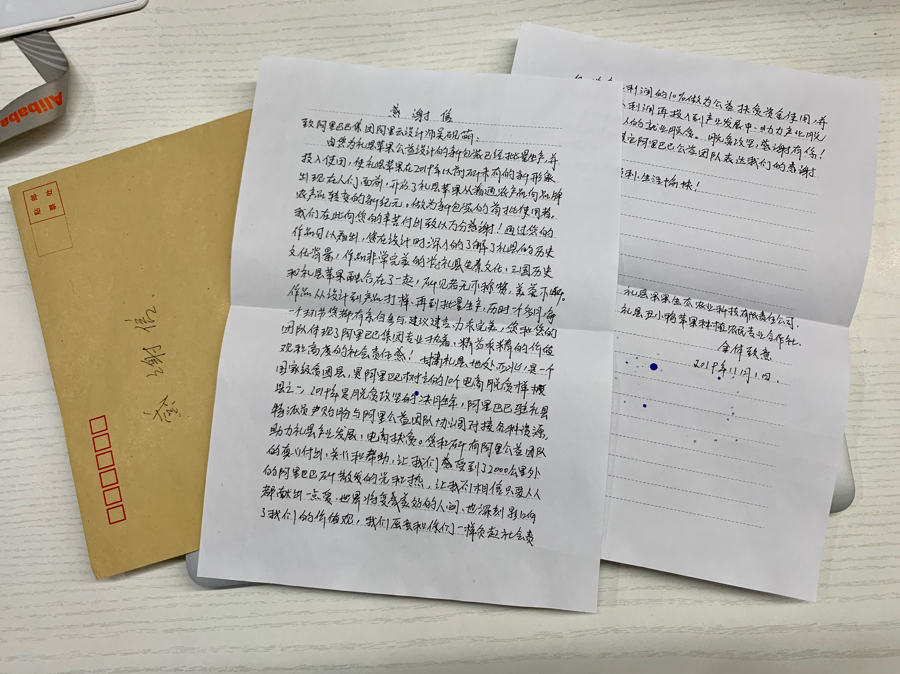 Alibaba
贴邮票处
感谢信
感谢信
致阿里巴巴集团阿里云设计师吴砚萌:
由您为礼县苹果公益设计的新包装已经批量生产,并
投入使用,使礼县苹果在2019年以前所未有的新形象
出现在人们面前,开启了礼县苹果从普通农产品向品牌
农产品转变的新纪元。做为新包装的首批使用者,
我们在此向您的辛苦付出致以万分感谢!通过您的
作品可以看出,您在设计时深入的了解了礼县的历史
文化背景,作品非常完美的将礼县先秦文化,三国历史
和礼县苹果融合在了一起,
作品从设计到产品打样,再到批量生产,历时
一个细节您都有亲自参与建议,力求完美,您和您的
团队体现了阿里巴巴集团专业执着,精益求精的价值
观和高度的社会责任感!甘肃礼县地处西北,是一个
国家级贫困县,是阿里巴巴对的10个电商脱贫样板
县之一,2019年是脱贫攻坚的决胜年,阿里巴巴驻礼县
特派员与阿里公益团队协调对接各种资源,
助力礼县产业发展,电商扶贫。您和所有阿里公益团队
的真心付出,关心和帮助,让我们感受到了2000公里外
的阿里巴巴所散发的光和热,让我们相信只要人人
都献出一点爱,世界将变成美好的人间,也深刻影响
了我们的价值观,我们愿意和你们一样负起社会责
利润的10%做为公益扶贫资金使用,并
利润再投入到产业发展中,助力产业脱
人的就业脱贫。脱贫攻坚,感谢有你!
阿里巴巴公益团队表达我们的感谢
顺利,生活愉快!
礼县果果生态农业科技有限责任公司
礼县丑小鸭苹果种植农民专业合作社
全体致意
2019年11月1日.